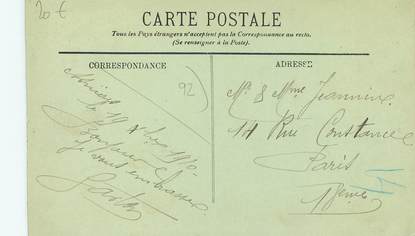 20 €
CARTE POSTALE
Tous les Pays étrangers n'acceptent pas la Correspondance au recto.
(Se renseigner à la Poste).
CORRESPONDANCE
92
le 19 1910
Bonjour
Je vous embrasse
ADRESSE
Mr. & Mme Jeannin
14 Rue Constance
Paris
18eme